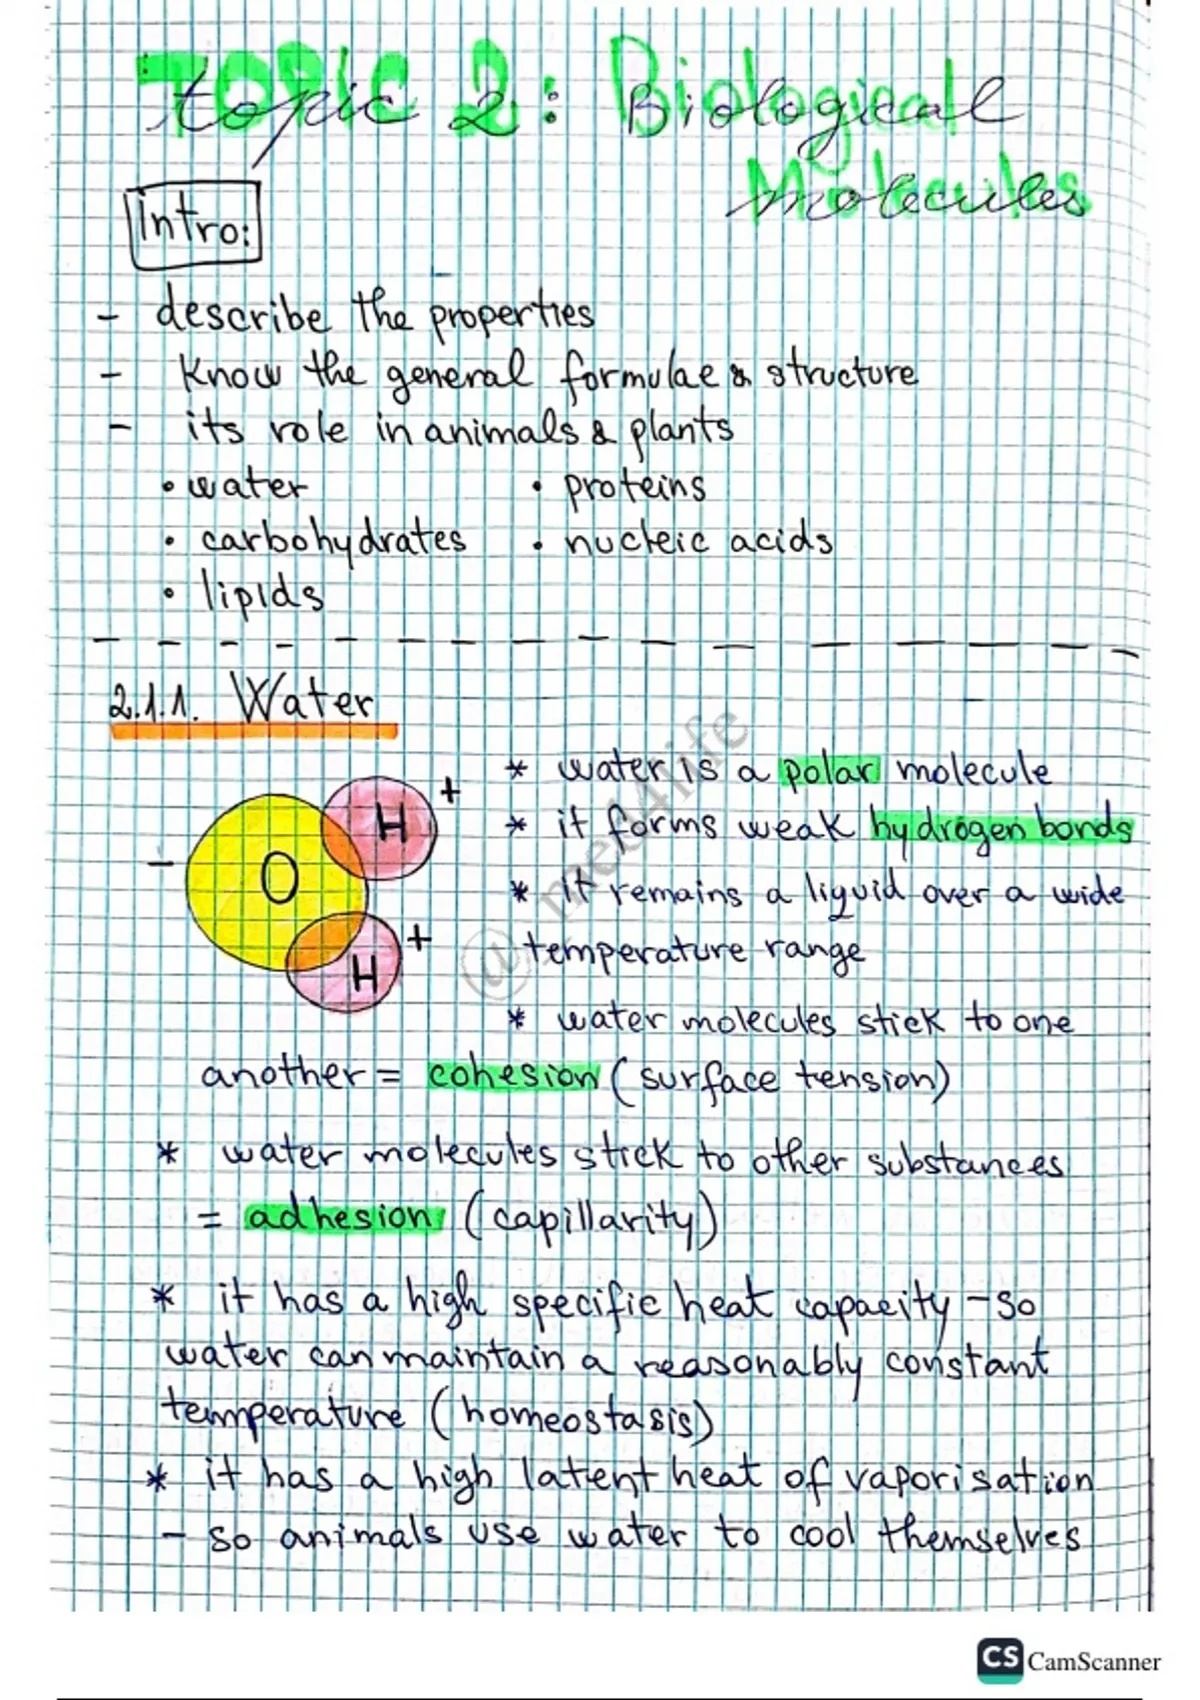 Topic 2: Biological
Molecules
Intro:
- describe the properties
- Know the general formulae & structure
- its role in animals & plants
• water • proteins
• carbohydrates • nucleic acids
• lipids
2.1.1. Water
* water is a polar molecule
* it forms weak hydrogen bonds
* it remains a liquid over a wide
temperature range
* water molecules stick to one
another = cohesion (surface tension)
- O H + H +
* water molecules stick to other substances
= adhesion (capillarity)
* it has a high specific heat capacity - so
water can maintain a reasonably constant
temperature (homeostasis)
* it has a high latent heat of vaporisation
- so animals use water to cool themselves
CS CamScanner